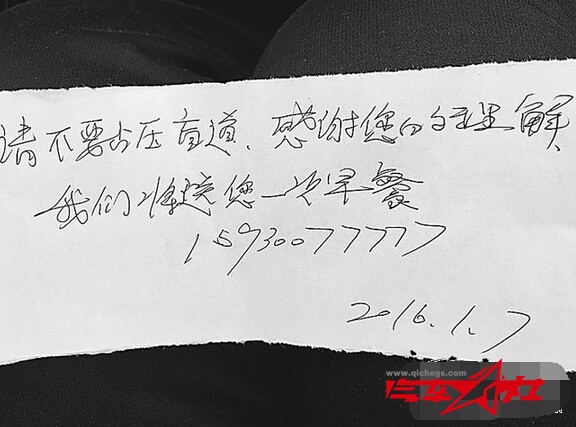 请不要占压盲道、感谢您的理解、
我们将送您一次早餐
15930077777
2016.1.7
www.qichegs.com
汽车